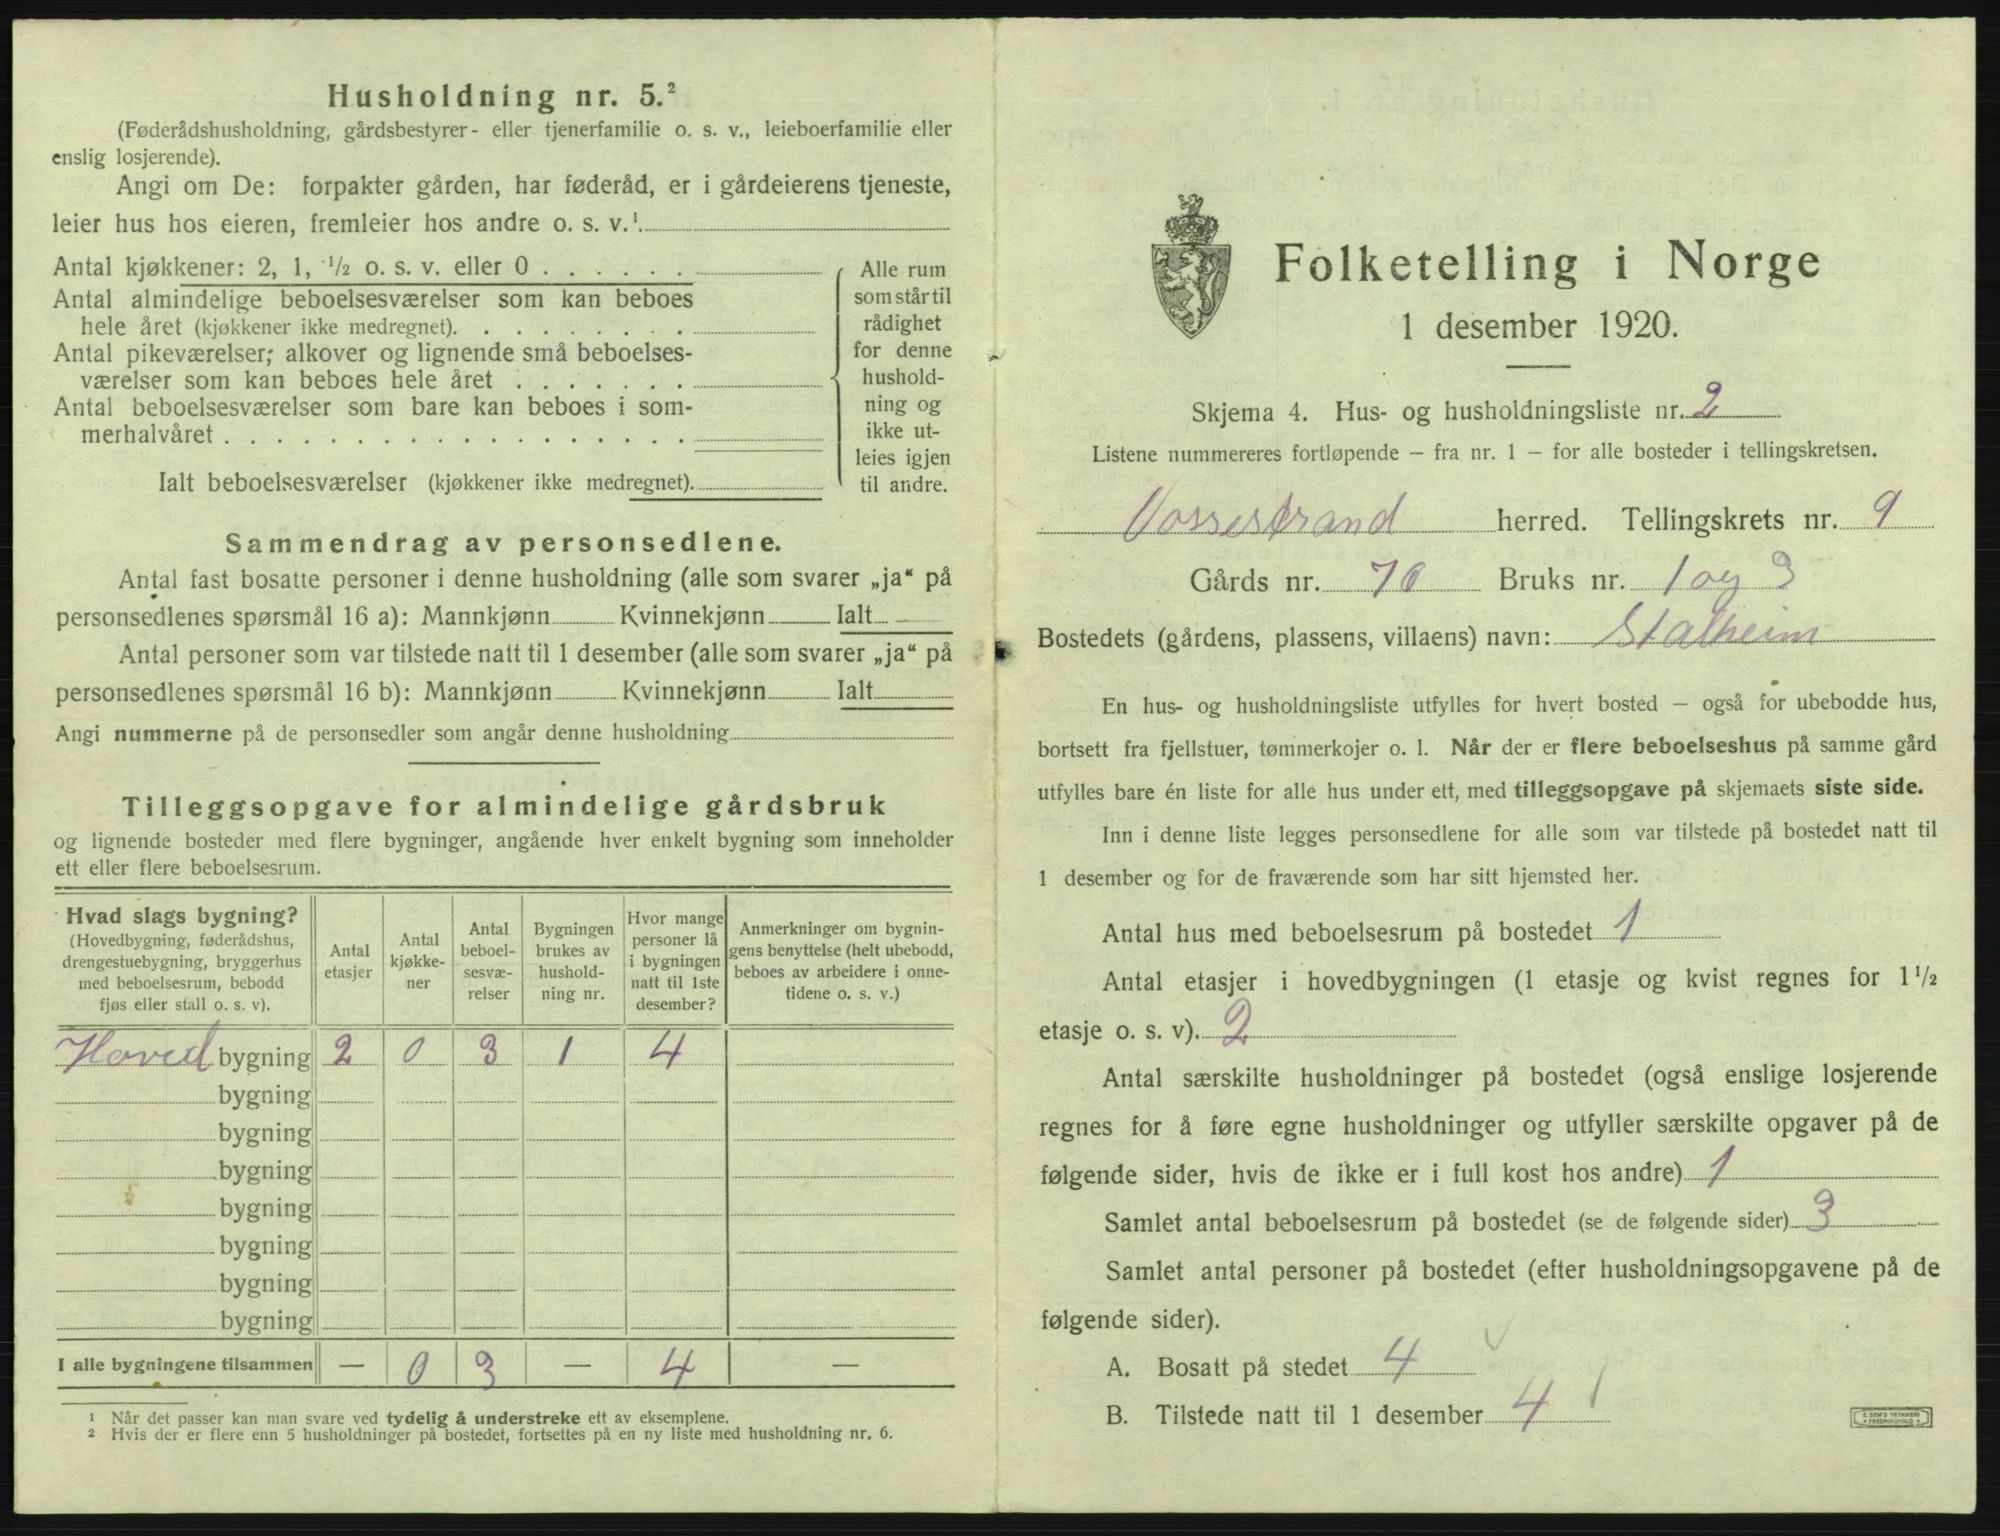 Husholdning nr. 5.²
(Føderådshusholdning, gårdsbestyrer- eller tjenerfamilie o. s. v., leieboerfamilie eller
enslig losjerende).
Angi om De: forpakter gården, har føderåd, er i gårdeierens tjeneste,
leier hus hos eieren, fremleier hos andre o. s. v.¹.
Antal kjøkkener: 2, 1, ½ o. s. v. eller 0 . . . . . .
Antal almindelige beboelsesværelser som kan beboes
hele året (kjøkkener ikke medregnet). . . . . . . . .
Antal pikeværelser, alkover og lignende små beboelses-
værelser som kan beboes hele året . . . . . . .
Antal beboelsesværelser som bare kan beboes i som-
merhalvåret . . . . . . . . . . . . . . . . .
Ialt beboelsesværelser (kjøkkener ikke medregnet).
Alle rum
som står til
rådighet
for denne
hushold-
ning og
ikke ut-
leies igjen
til andre.
Sammendrag av personsedlene.
Antal fast bosatte personer i denne husholdning (alle som svarer „ja“ på
personsedlenes spørsmål 16 a): Mannkjønn Kvinnekjønn Ialt
Antal personer som var tilstede natt til 1 desember (alle som svarer „ja“ på
personsedlenes spørsmål 16 b): Mannkjønn Kvinnekjønn Ialt
Angi nummerne på de personsedler som angår denne husholdning
Tilleggsopgave for almindelige gårdsbruk
og lignende bosteder med flere bygninger, angående hver enkelt bygning som inneholder
ett eller flere beboelsesrum.
Hvad slags bygning?
(Hovedbygning, føderådshus,
drengestuebygning, bryggerhus
med beboelsesrum, bebodd
fjøs eller stall o. s. v).
Antal
etasjer
Antal
kjøkke-
ner
Antal
beboel-
sesvæ-
relser
Bygningen
brukes av
hushold-
ning nr.
Hvor mange
personer lå
i bygningen
natt til 1ste
desember?
Anmerkninger om bygnin-
gens benyttelse (helt ubebodd,
beboes av arbeidere i onne-
tidene o. s. v.)
Hoved bygning 2 0 3 1 4
bygning
bygning
bygning
bygning
bygning
bygning
bygning
I alle bygningene tilsammen — 0 3 — 4 —
¹ Når det passer kan man svare ved tydelig å understreke ett av eksemplene.
² Hvis der er flere enn 5 husholdninger på bostedet, fortsettes på en ny liste med husholdning nr. 6.
Folketelling i Norge
1 desember 1920.
Skjema 4. Hus- og husholdningsliste nr. 2
Listene nummereres fortløpende — fra nr. 1 — for alle bosteder i tellingskretsen.
Vossestrand herred. Tellingskrets nr. 9
Gårds nr. 76 Bruks nr. 1 og 3
Bostedets (gårdens, plassens, villaens) navn: Stalheim
En hus- og husholdningsliste utfylles for hvert bosted — også for ubebodde hus,
bortsett fra fjellstuer, tømmerkojer o. l. Når der er flere beboelseshus på samme gård
utfylles bare én liste for alle hus under ett, med tilleggsopgave på skjemaets siste side.
Inn i denne liste legges personsedlene for alle som var tilstede på bostedet natt til
1 desember og for de fraværende som har sitt hjemsted her.
Antal hus med beboelsesrum på bostedet 1
Antal etasjer i hovedbygningen (1 etasje og kvist regnes for 1½
etasje o. s. v). 2
Antal særskilte husholdninger på bostedet (også enslige losjerende
regnes for å føre egne husholdninger og utfyller særskilte opgaver på de
følgende sider, hvis de ikke er i full kost hos andre) 1
Samlet antal beboelsesrum på bostedet (se de følgende sider) 3
Samlet antal personer på bostedet (efter husholdningsopgavene på de
følgende sider).
A. Bosatt på stedet 4
B. Tilstede natt til 1 desember 4
E. SEM'S TRYKKERI
FREDRIKSHALD